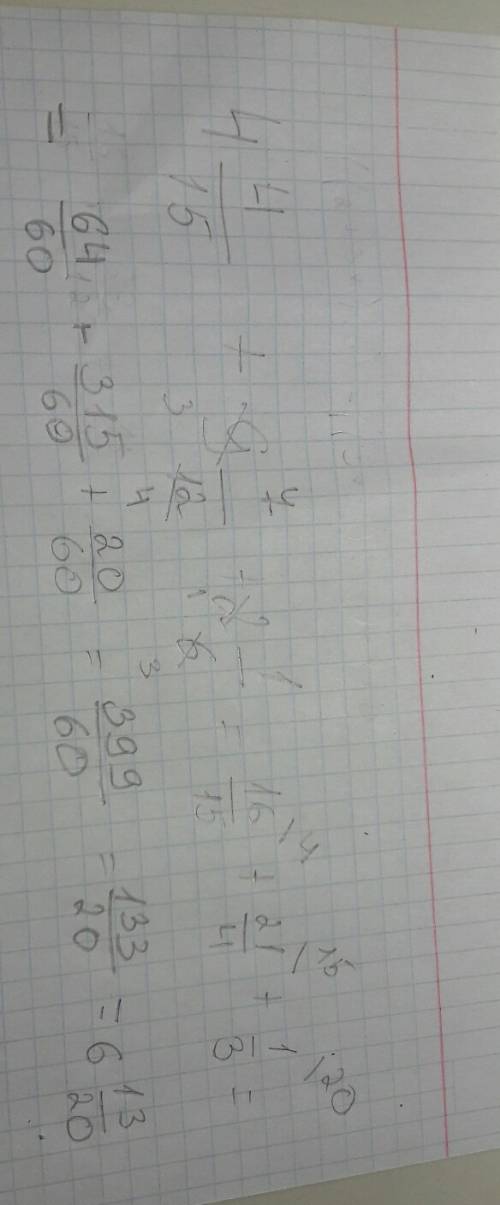 4 4/15 + 3 7/12 4 - 2 1/6 3 = 16/15 \4 + 21/4 \15 + 1/3 \20 =
= 64/60 + 315/60 + 20/60 = 399/60 = 133/20 = 6 13/20